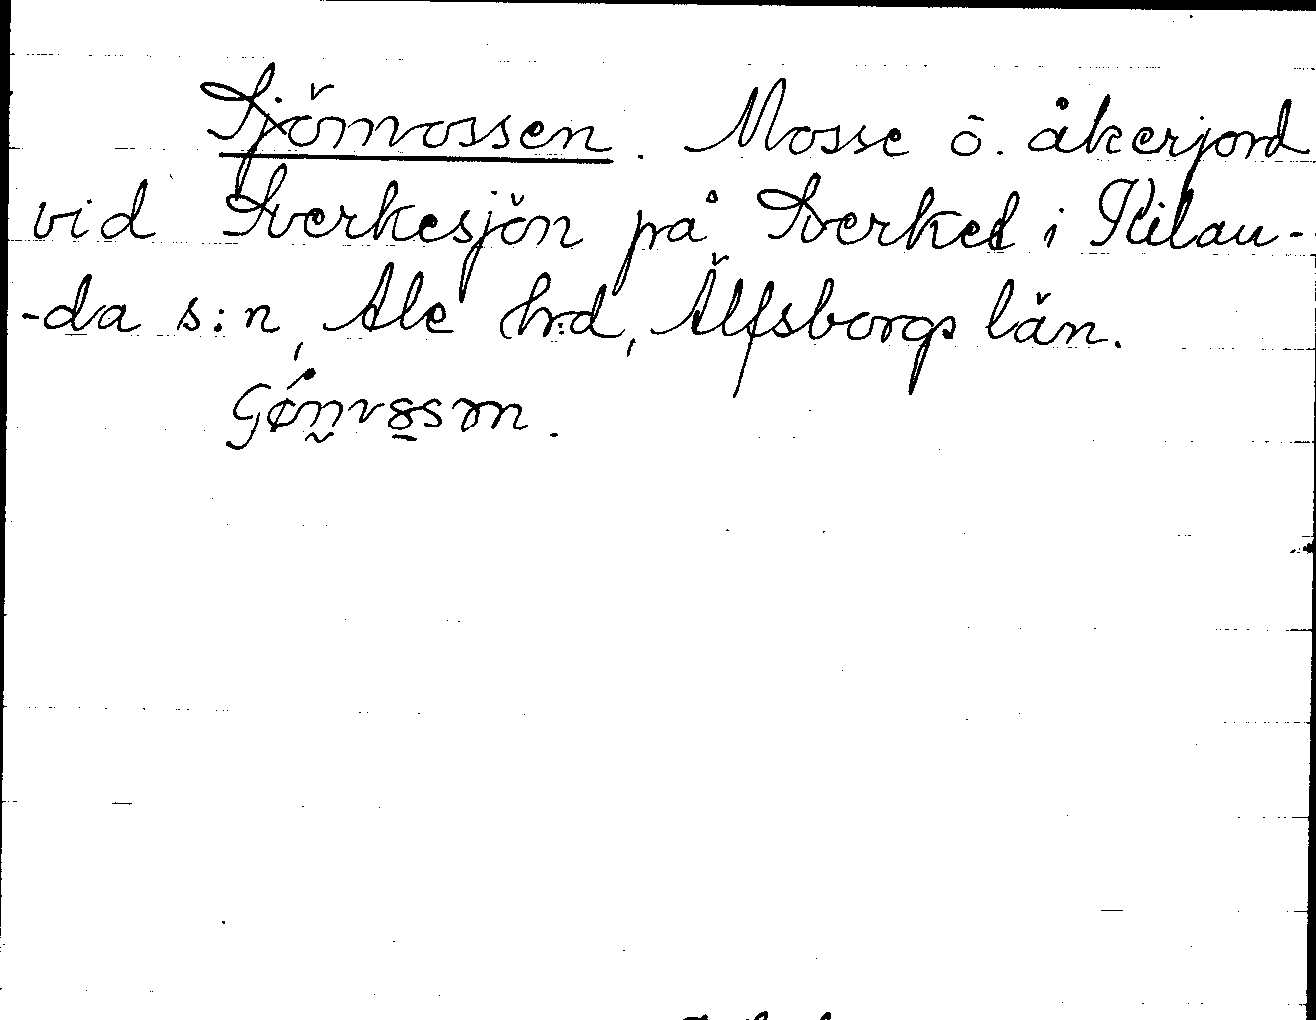 Sjömossen. Mosse o. åkerjord
vid Sverkesjön på Sverket i Kilan-
-da s:n, Ale h:d, Älfsborgs län.